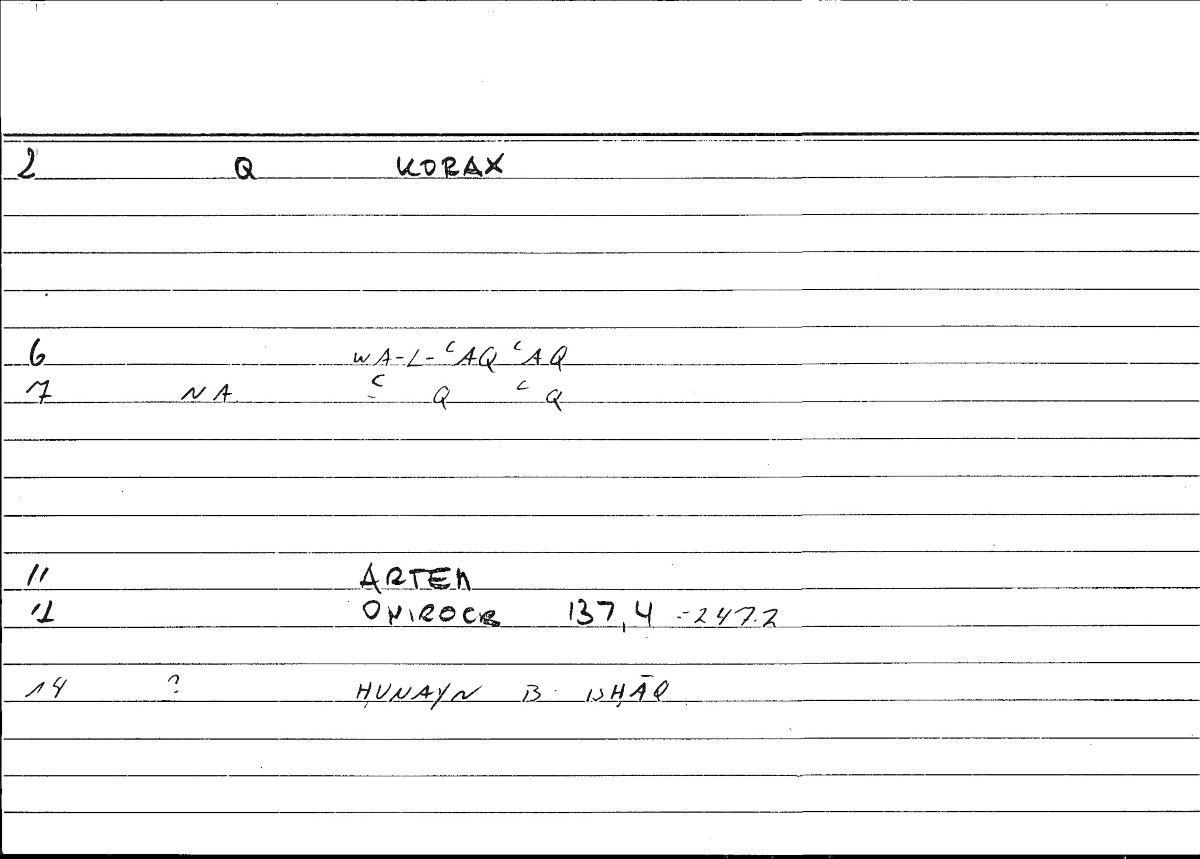 2 Q KORAX
6 WA-L-ʿAQʿAQ
7 NA ʿ Q ʿ Q
11 ARTEM
12 ONIROCR 137,4 =247.2
14 ? ḤUNAYN B. ISḤĀQ